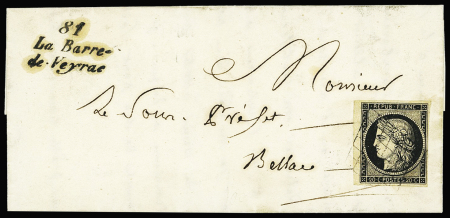 81
La Barre-
de-Veyrac
Monsieur
Le Sous-Préfet
Bellac
REPUB. FRANC.
20 C POSTES 20 C